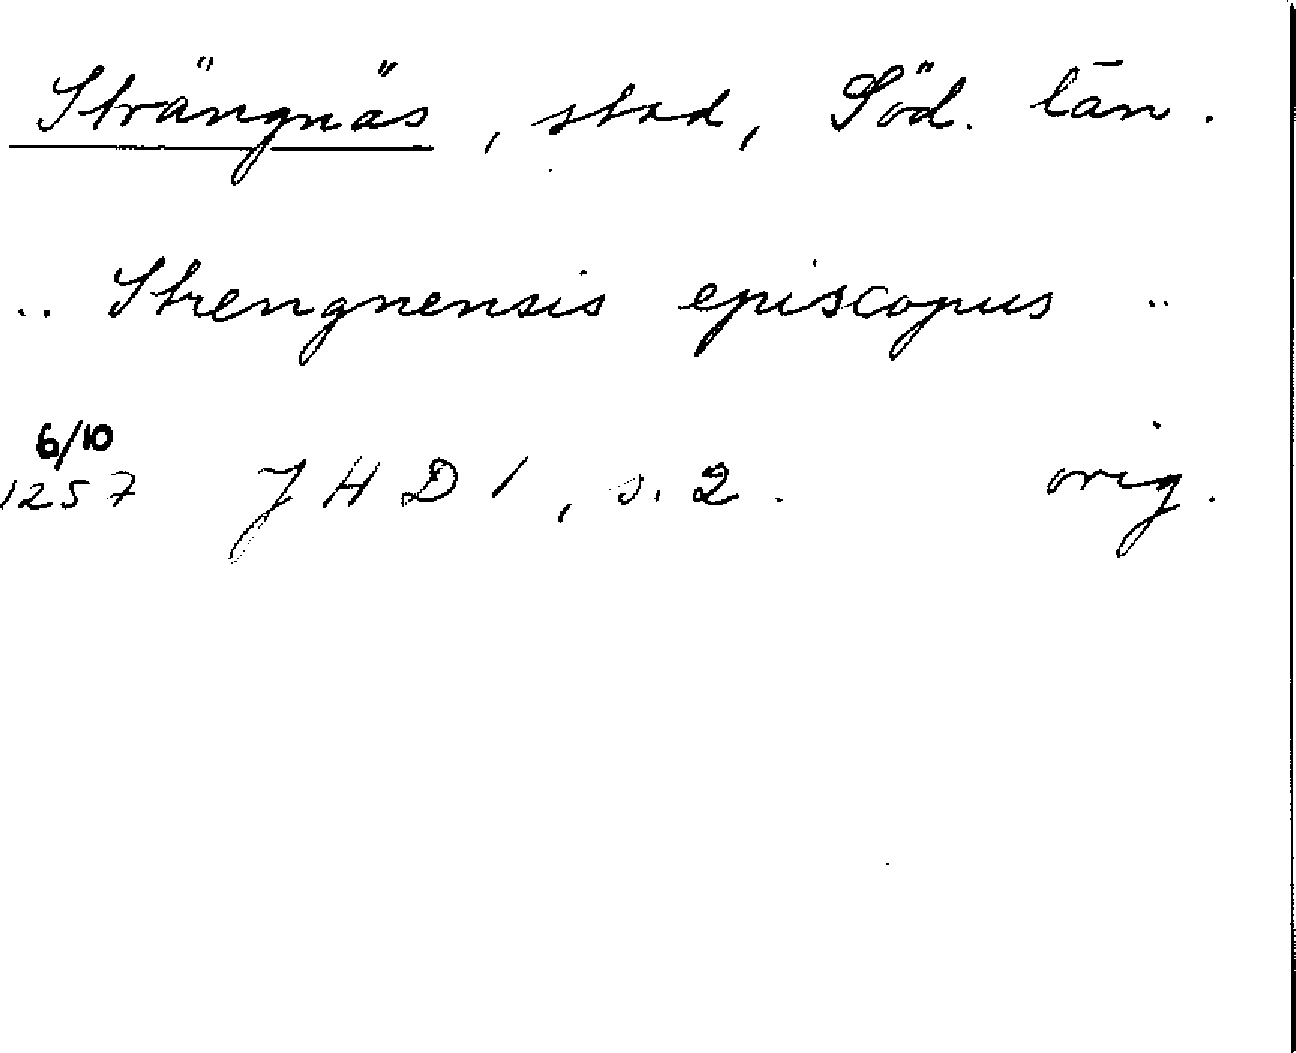 Strängnäs, stad, Söd. län.
.. Strengnensis episcopus ..
6/10
1257 JHD 1, s. 2. orig.